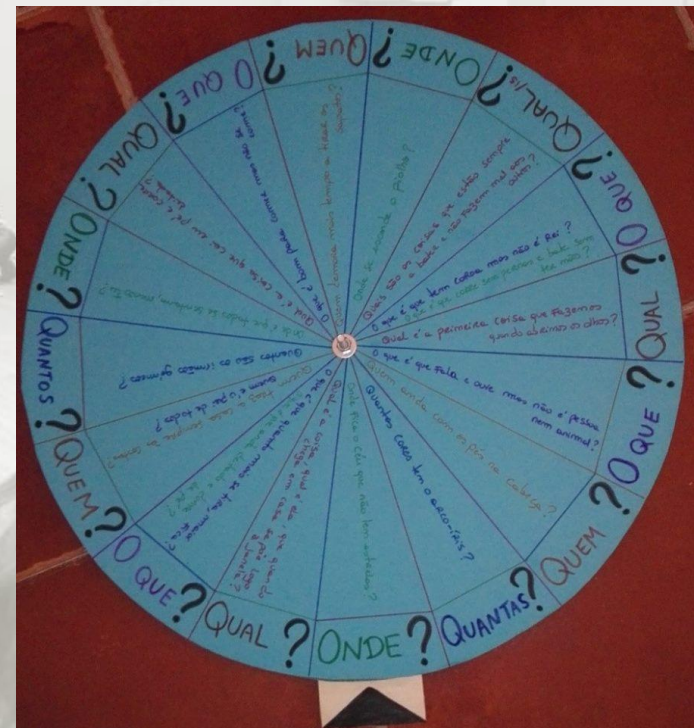 QUEM?
ONDE?
QUAL/IS?
O QUE?
QUAL?
O QUE?
QUEM?
QUANTAS?
ONDE?
QUAL?
O QUE?
QUEM?
QUANTOS?
ONDE?
QUAL?
O QUE?
Onde se esconde o piolho?
Quais são as coisas que estão sempre
a bater e não fazem mal aos
outros?
O que é que tem coroa mas não é Rei?
O que é que corre sem pernas e bate sem
ter mãos?
Qual é a primeira coisa que fazemos
quando abrimos os olhos?
O que é que fala e ouve mas não é pessoa
nem animal?
Quem anda com os pés na cabeça?
Quantas cores tem o arco-íris?
Onde fica o céu que não tem estrelas?
Qual é a coisa, qual é ela que quando
chega em casa se põe logo
à janela?
O que é que quanto mais se tira, maior
fica?
Quem
é o pai de todos?
Quem faz a casa sempre às costas?
Quantos são os irmãos gémeos?
Onde é que todos se sentam, menos tu?
Qual é a coisa que cai em pé e corre
deitada?
O que é bom para comer mas não se come?